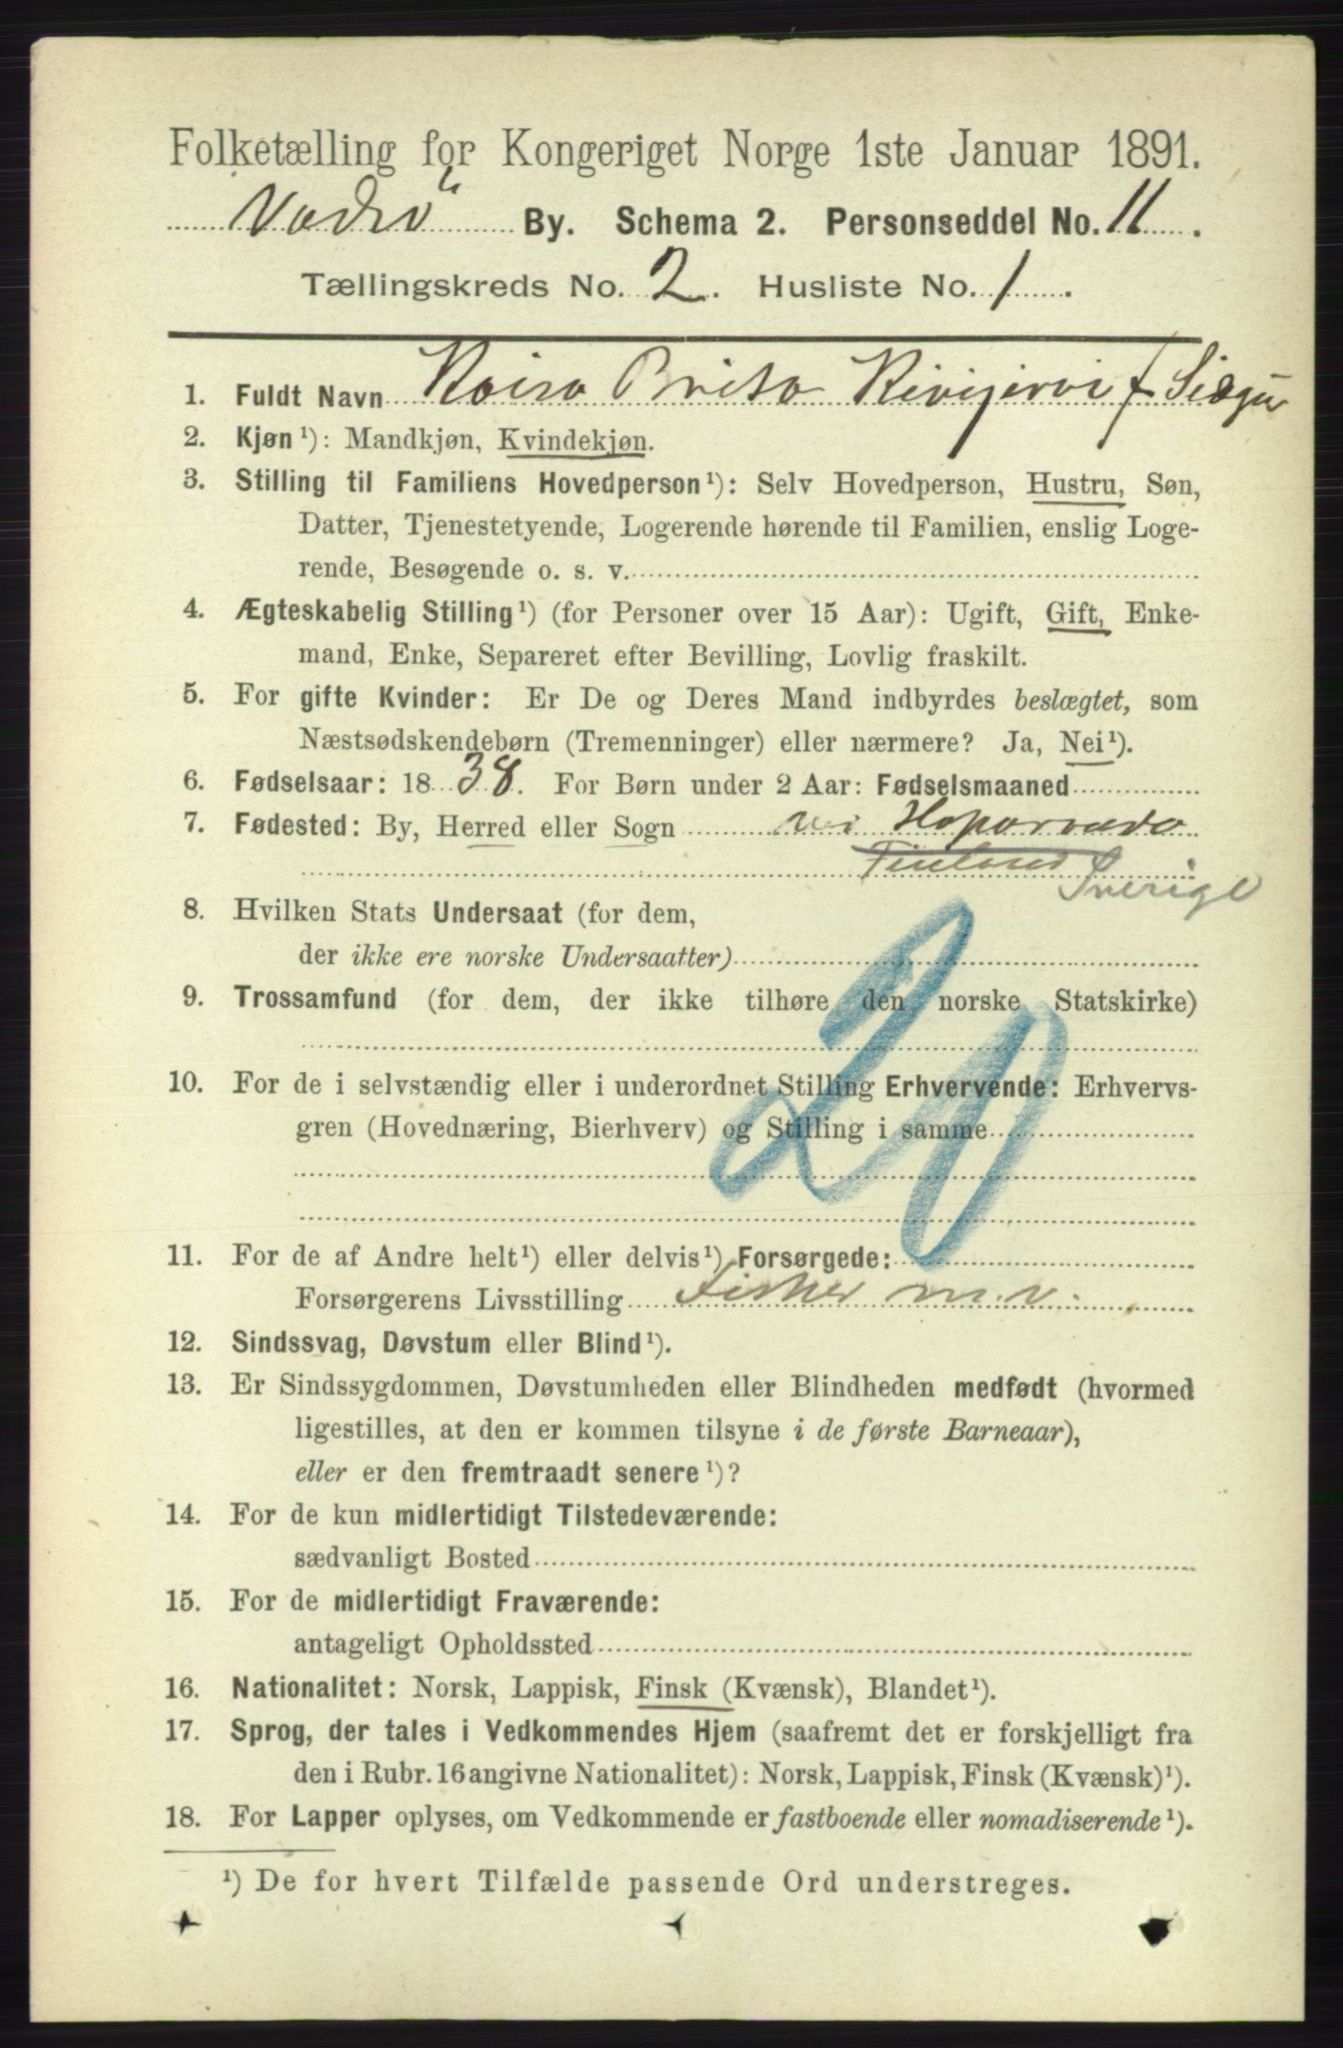 Folketælling for Kongeriget Norge 1ste Januar 1891.
Vadsö By. Schema 2. Personseddel No. 11.
Tællingskreds No. 2. Husliste No. 1.
1. Fuldt Navn Kaisa Brita Kivijervi f
2. Kjøn¹): Mandkjøn, Kvindekjøn.
3. Stilling til Familiens Hovedperson¹): Selv Hovedperson, Hustru, Søn,
Datter, Tjenestetyende, Logerende hørende til Familien, enslig Loge-
rende, Besøgende o. s. v.
4. Ægteskabelig Stilling¹) (for Personer over 15 Aar): Ugift, Gift, Enke-
mand, Enke, Separeret efter Bevilling, Lovlig fraskilt.
5. For gifte Kvinder: Er De og Deres Mand indbyrdes beslægtet, som
Næstsødskendebørn (Tremenninger) eller nærmere? Ja, Nei¹).
6. Fødselsaar: 1838. For Børn under 2 Aar: Fødselsmaaned
7. Fødested: By, Herred eller Sogn Haparanda
Finland Sverige
8. Hvilken Stats Undersaat (for dem,
der ikke ere norske Undersaatter)
9. Trossamfund (for dem, der ikke tilhøre den norske Statskirke)
20
10. For de i selvstændig eller i underordnet Stilling Erhvervende: Erhvervs-
gren (Hovednæring, Bierhverv) og Stilling i samme
11. For de af Andre helt¹) eller delvis¹) Forsørgede:
Forsørgerens Livsstilling Fisker m.v.
12. Sindssvag, Døvstum eller Blind¹).
13. Er Sindssygdommen, Døvstumheden eller Blindheden medfødt (hvormed
ligestilles, at den er kommen tilsyne i de første Barneaar),
eller er den fremtraadt senere¹)?
14. For de kun midlertidigt Tilstedeværende:
sædvanligt Bosted
15. For de midlertidigt Fraværende:
antageligt Opholdssted
16. Nationalitet: Norsk, Lappisk, Finsk (Kvænsk), Blandet¹).
17. Sprog, der tales i Vedkommendes Hjem (saafremt det er forskjelligt fra
den i Rubr. 16 angivne Nationalitet): Norsk, Lappisk, Finsk (Kvænsk)¹).
18. For Lapper oplyses, om Vedkommende er fastboende eller nomadiserende¹).
¹) De for hvert Tilfælde passende Ord understreges.